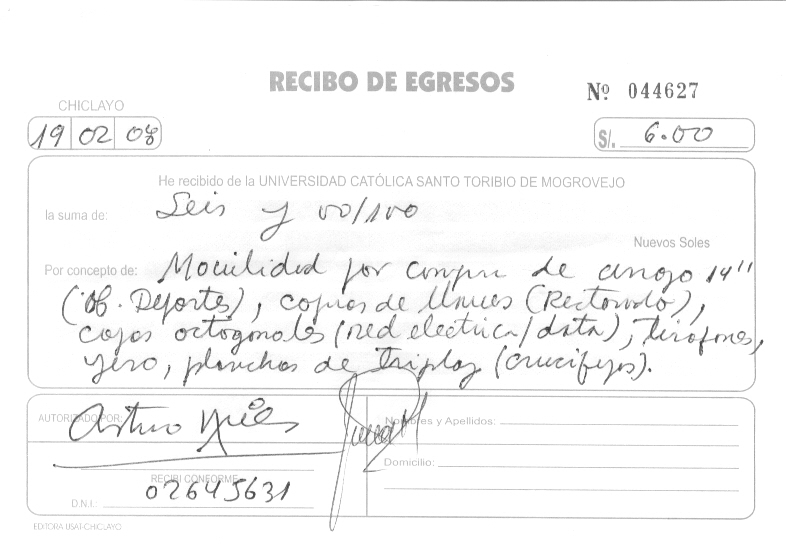 RECIBO DE EGRESOS
Nº 044627
CHICLAYO
19 02 08
S/. 6.00
He recibido de la UNIVERSIDAD CATÓLICA SANTO TORIBIO DE MOGROVEJO
la suma de: Seis y 00/100
Nuevos Soles
Por concepto de: Movilidad por compra de 14"
(Of. Deportes), copias de llaves (Rectorado),
cajas octogonales (red electrica/data), tirafones,
yeso, planchas de triplay (crucifijos).
AUTORIZADO POR: Arturo
Nombres y Apellidos:
Domicilio:
RECIBI CONFORME
D.N.I.: 02645631
EDITORA USAT-CHICLAYO